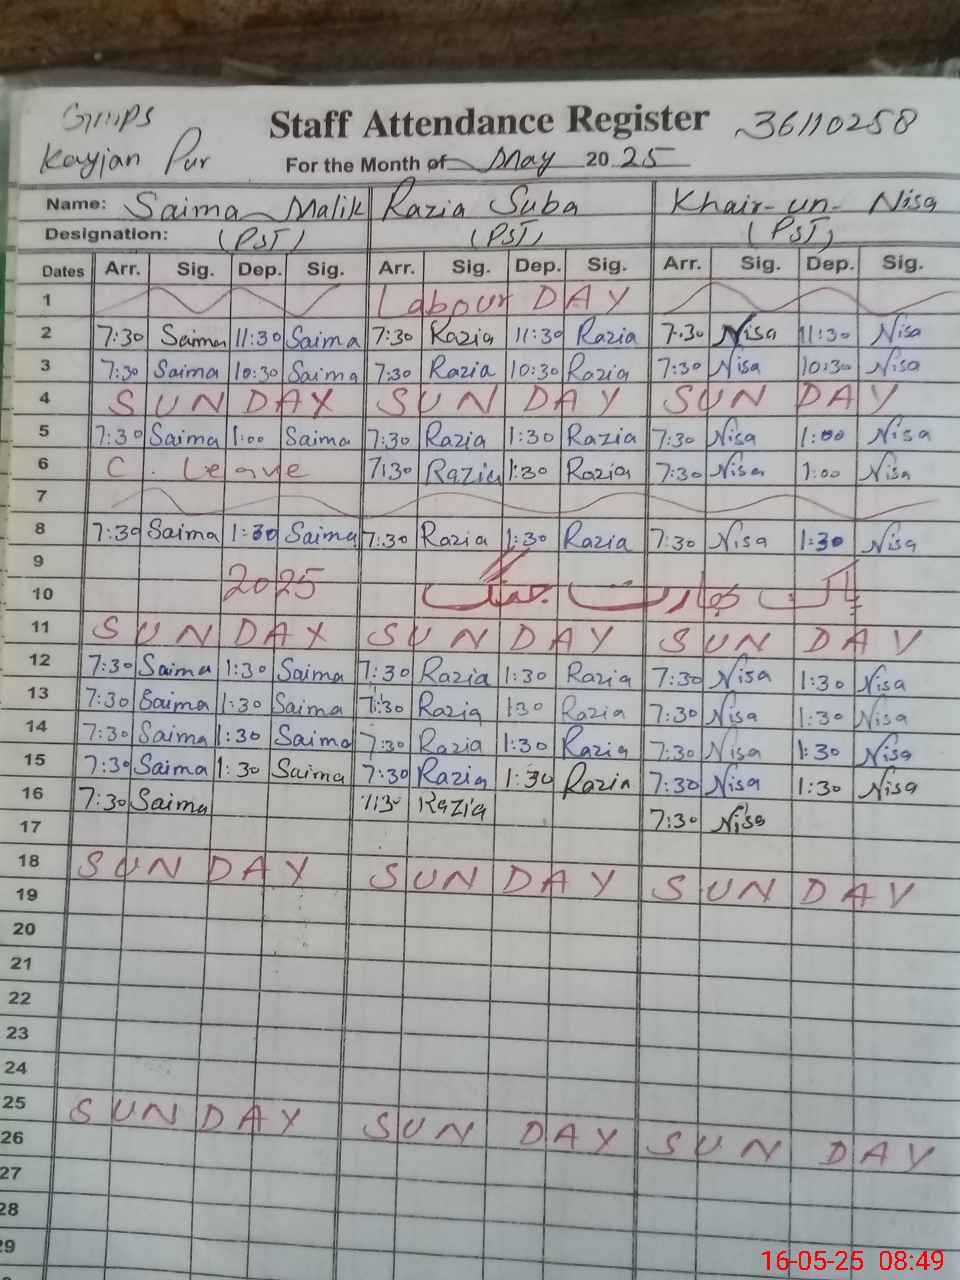 GMMPS Staff Attendance Register 36110258
Kayjan Pur For the Month of May 2025
Name: Saima Malik Razia Suba Khair-un-Nisa
Designation: (PST) (PST) (PST)
Dates Arr. Sig. Dep. Sig. Arr. Sig. Dep. Sig. Arr. Sig. Dep. Sig.
1 Labour DAY
2 7:30 Saima 11:30 Saima 7:30 Razia 11:30 Razia 7:30 Nisa 11:30 Nisa
3 7:30 Saima 10:30 Saima 7:30 Razia 10:30 Razia 7:30 Nisa 10:30 Nisa
4 SUNDAY SUNDAY SUNDAY
5 7:30 Saima 1:00 Saima 7:30 Razia 1:30 Razia 7:30 Nisa 1:00 Nisa
6 C. Leave 7:30 Razia 1:30 Razia 7:30 Nisa 1:00 Nisa
7
8 7:30 Saima 1:30 Saima 7:30 Razia 1:30 Razia 7:30 Nisa 1:30 Nisa
9
10 2025 پاک بھارت جنگ
11 SUNDAY SUNDAY SUNDAY
12 7:30 Saima 1:30 Saima 7:30 Razia 1:30 Razia 7:30 Nisa 1:30 Nisa
13 7:30 Saima 1:30 Saima 7:30 Razia 1:30 Razia 7:30 Nisa 1:30 Nisa
14 7:30 Saima 1:30 Saima 7:30 Razia 1:30 Razia 7:30 Nisa 1:30 Nisa
15 7:30 Saima 1:30 Saima 7:30 Razia 1:30 Razia 7:30 Nisa 1:30 Nisa
16 7:30 Saima 7:30 Razia 7:30 Nisa
17
18 SUNDAY SUNDAY SUNDAY
19
20
21
22
23
24
25 SUNDAY SUNDAY SUNDAY
26
27
28
29
16-05-25 08:49